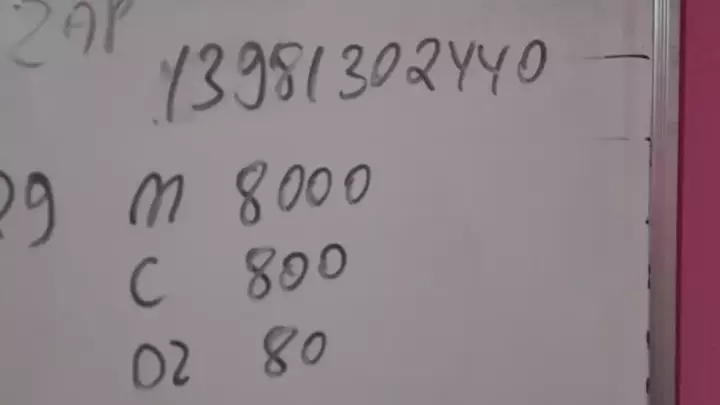 ZAP
13981302440
29 M 8000
C 800
DZ 80